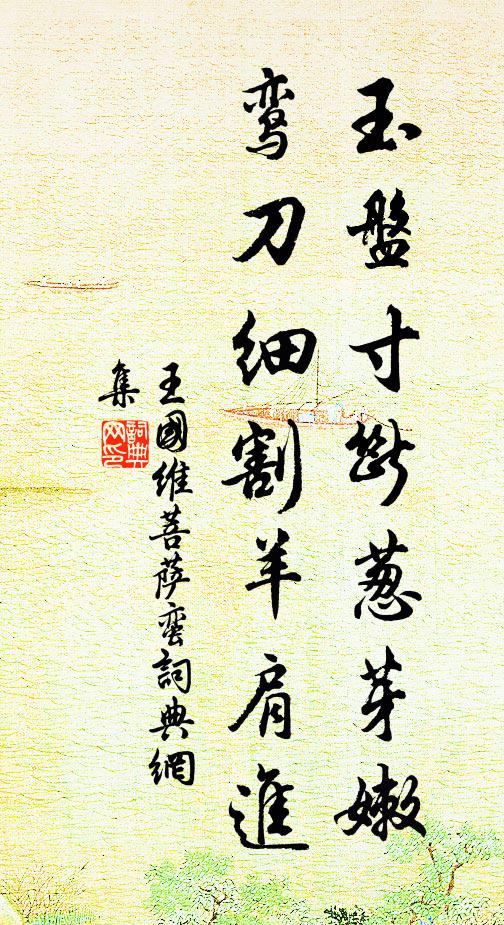 玉盤寸斷葱芽嫩
鸾刀细割羊肩進
王國維菩萨蛮詞典網
集
詞典网印